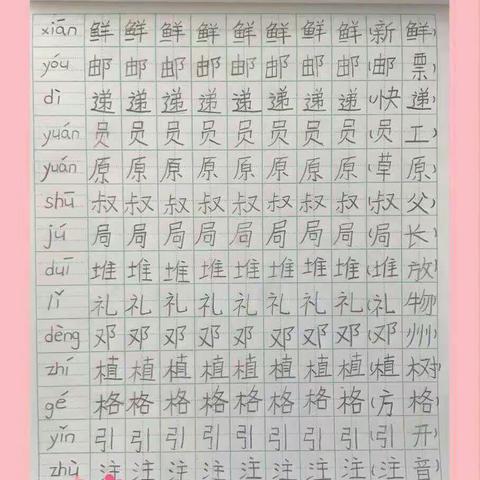 xiān 鲜 鲜 鲜 鲜 鲜 鲜 鲜 鲜 (新 鲜)
yóu 邮 邮 邮 邮 邮 邮 邮 邮 (邮 票)
dì 递 递 递 递 递 递 递 递 (快 递)
yuán 员 员 员 员 员 员 员 员 (员 工)
yuán 原 原 原 原 原 原 原 原 (草 原)
shū 叔 叔 叔 叔 叔 叔 叔 叔 (叔 父)
jú 局 局 局 局 局 局 局 局 (局 长)
duī 堆 堆 堆 堆 堆 堆 堆 堆 (堆 放)
lǐ 礼 礼 礼 礼 礼 礼 礼 礼 (礼 物)
dèng 邓 邓 邓 邓 邓 邓 邓 邓 (邓 州)
zhí 植 植 植 植 植 植 植 植 (植 树)
gé 格 格 格 格 格 格 格 格 (方 格)
yǐn 引 引 引 引 引 引 引 引 (引 开)
zhù 注 注 注 注 注 注 注 注 (注 音)